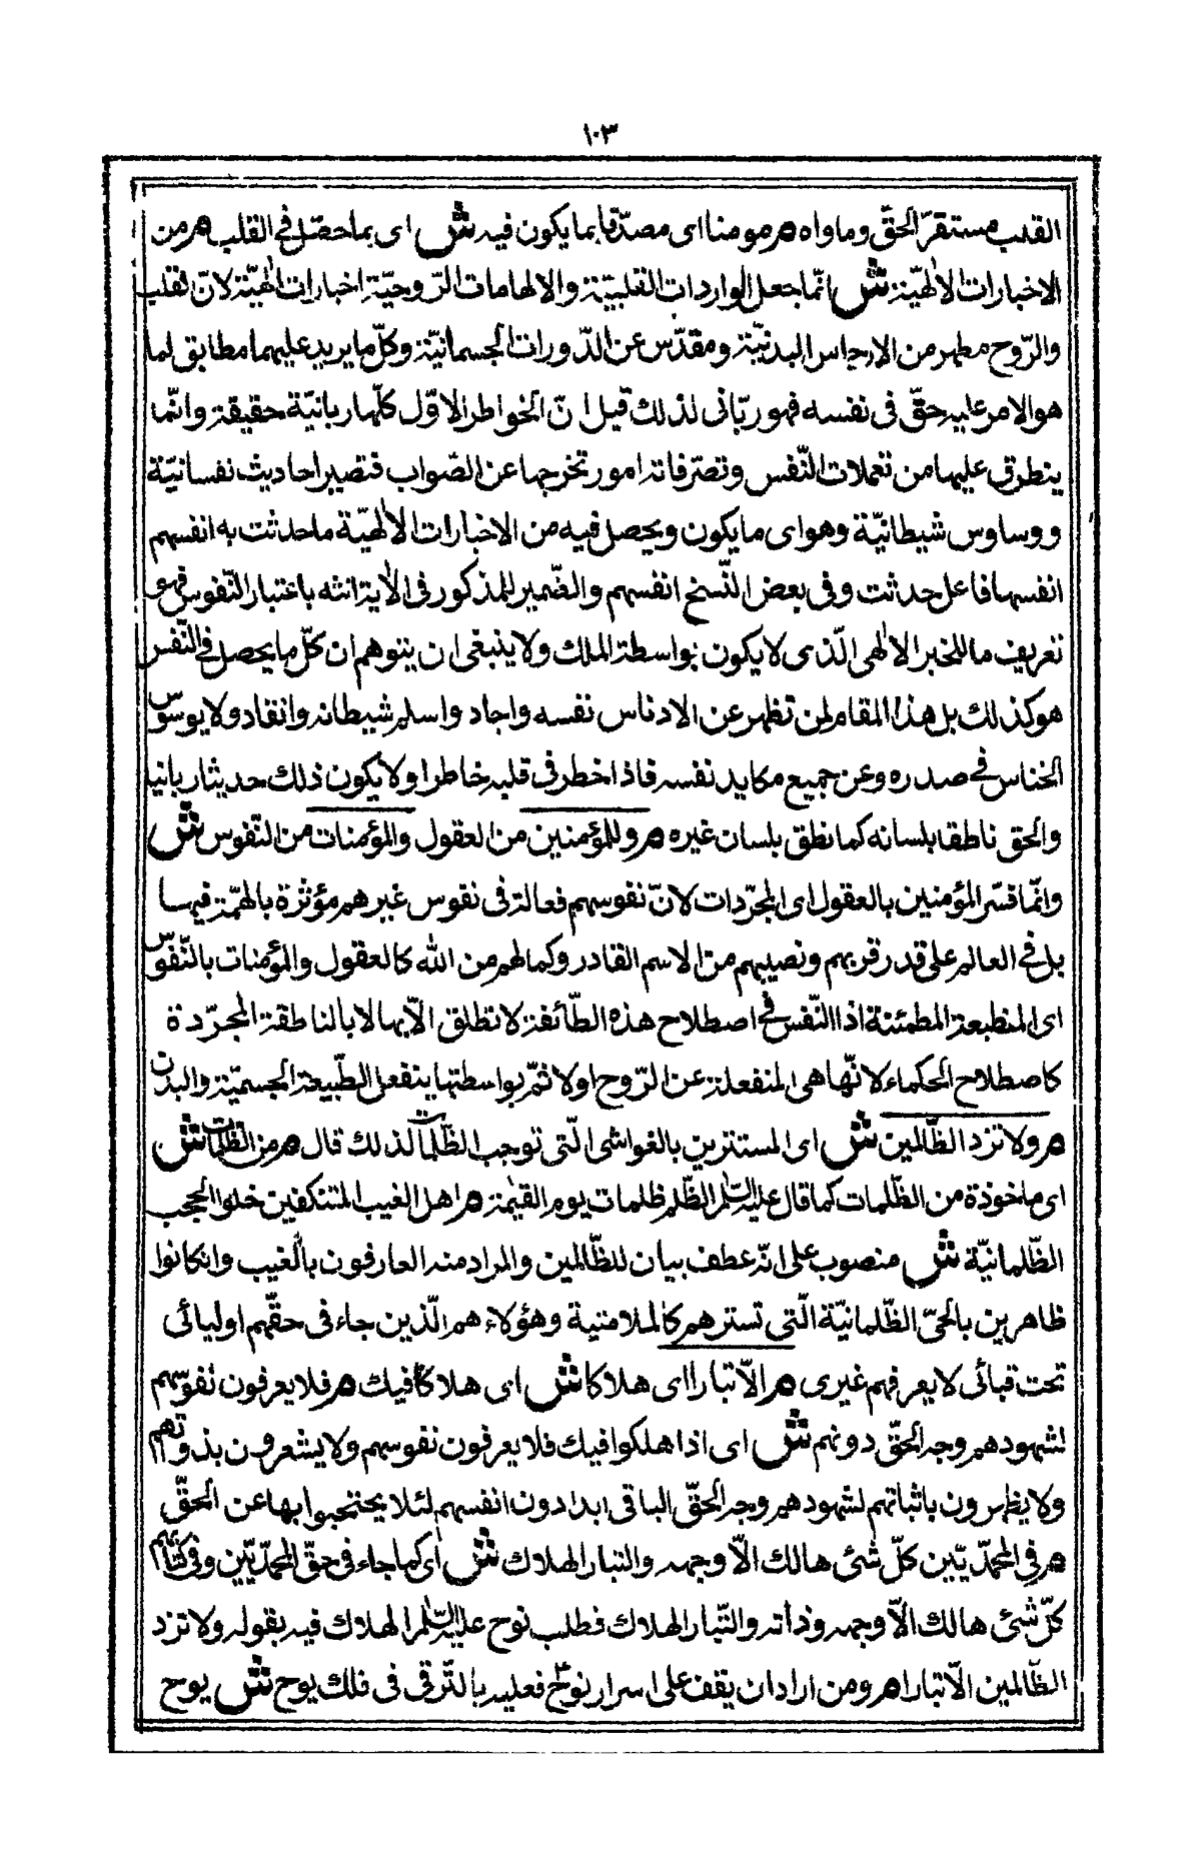 ١٠٣
القلب مستقرّ الحقّ وماواه م مومنا اى مصدّقا بما يكون فيه ش اى بما حصل فى القلب م من
الاخبارات الالٰهيّة ش انّما جعل الواردات القلبيّة والالهامات الرّوحيّة اخبارات الٰهيّة لانّ لقلب
والرّوح مطهر من الارجاس البدنيّة ومقدّس عن الدّورات الجسمانيّة وكلّ ما يريد عليهما مطابق لما
هو الامر عليه حقّ فى نفسه فهو ربّانى لذلك قيل انّ الخواطر الاوّل كلّها ربانيّة حقيقة وانّما
يتطرق عليها من تعملات النّفس وتصرّفاته امور تخرجها عن الصّواب فتصير احاديث نفسانيّة
ووساوس شيطانيّة وهو اى ما يكون ويحصل فيه من الاخبارات الالٰهيّة ما حدثت به انفسهم
انفسها فاعل حدثت وفى بعض النّسخ انفسهم والضّمير المذكور فى الاٰية انثه باعتبار النّفوس فهو
تعريف ما للخبر الالٰهى الّذى لا يكون بواسطة الملك ولا ينبغى ان يتوهم ان كلّ ما يحصل فى النّفس
هو كذلك بل هذا المقام لمن تطهر عن الادناس نفسه واجاد واسلم شيطانه وانقاد ولا يوسوس
الخناس فى صدره وعن جميع مكايد نفسه فاذا خطر فى قلبه خاطر اولا يكون ذلك حديثا ربانيا
والحق ناطقا بلسانه كما نطق بلسان غيره م وللمؤمنين من العقول والمؤمنات من النّفوس ش
وانّما فسّر المؤمنين بالعقول اى المجرّدات لانّ نفوسهم فعالة فى نفوس غيرهم مؤثرة بالهمّة فيها
بل فى العالم على قدر قربهم ونصيبهم من الاسم القادر وكمالهم من الله كالعقول والمؤمنات بالنّفوس
اى المنطبعة المطمئنة اذ النّفس فى اصطلاح هذه الطّائفة لا تطلق الّا بها لا بالناطقة المجرّدة
كاصطلاح الحكماء لانّها هى المنفعلة عن الرّوح اولا ثمّ بواسطتها ينفعل الطّبيعة الجسميّة والبدن
م ولا تزد الظّالمين ش اى المستترين بالغواشى الّتى توجب الظّلمات لذلك قال م من الظلمات ش
اى ماخوذة من الظّلمات كما قال عليه السّلام الظّلم ظلمات يوم القيٰمة م اهل الغيب المتنكفين خلوا الحجب
الظّلمانيّة ش منصوب على انّه عطف بيان للظّالمين والمراد منه العارفون بالغيب وان كانوا
ظاهرين بالحىّ الظّلمانيّة الّتى تسترهم كالملامتية وهؤلاء هم الّذين جاء فى حقّهم اوليائى
تحت قبائى لا يعرفهم غيرى م الّا تبارا اى هلاكا ش اى هلاكا فيك م فلا يعرفون نفوسهم
لشهودهم وجه الحقّ دونهم ش اى اذا هلكوا فيك فلا يعرفون نفوسهم ولا يشعرون بذواتهم
ولا يظهرون باثباتهم لشهودهم وجه الحقّ الباقى ابدا دون انفسهم لئلا يحتجبوا بها عن الحقّ
م فى المحمّديّين كلّ شئ هالك الّا وجهه والتبار الهلاك ش اى كما جاء فى حقّ المحمّديّين وفى كتابهم
كلّ شئ هالك الّا وجهه وذاته والتّبار الهلاك فطلب نوح عليه السّلام الهلاك فيه بقوله ولا تزد
الظّالمين الّا تبارا م ومن اراد ان يقف على اسرار نوح فعليه بالتّرقى فى فلك يوح ش يوح